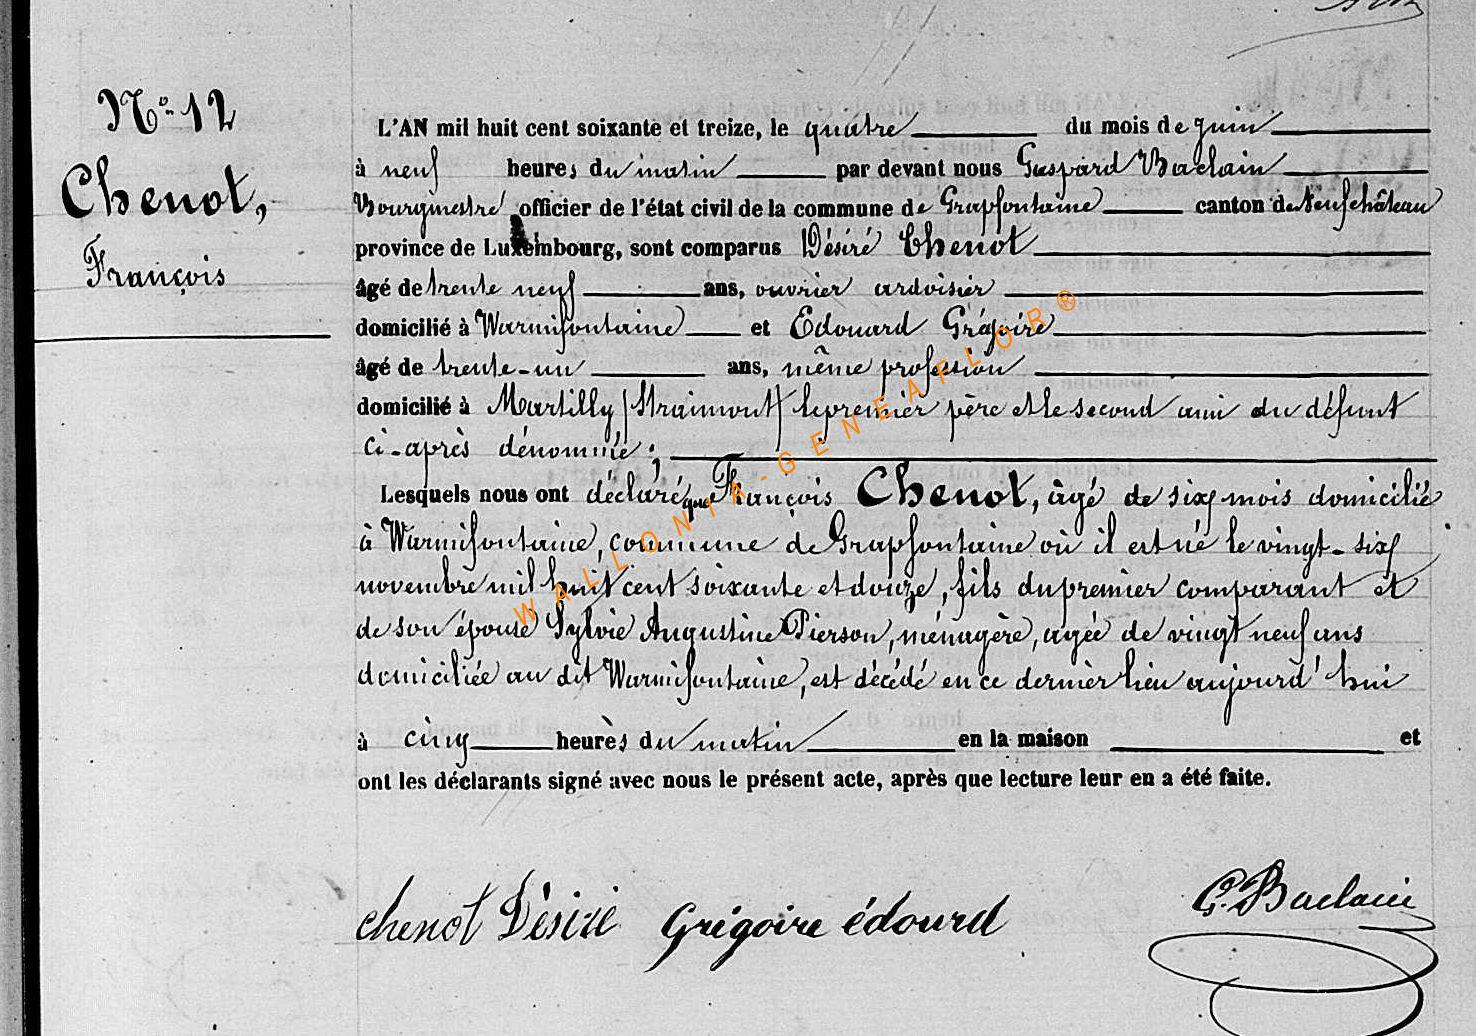 N° 12
Chenot,
François
L'AN mil huit cent soixante et treize, le quatre du mois de juin
à neuf heures du matin par devant nous Gaspard Baclain
Bourgmestre officier de l'état civil de la commune de Grapfontaine canton de Neufchâteau
province de Luxembourg, sont comparus Désiré Chenot
âgé de trente neuf ans, ouvrier ardoisier
domicilié à Warmifontaine et Edouard Grégoire
âgé de trente-un ans, même profession
domicilié à Martilly (Straimont) le premier père et le second ami du défunt
ci-après dénommé ;
Lesquels nous ont déclaré que François Chenot, âgé de six mois domicilié
à Warmifontaine, commune de Grapfontaine où il est né le vingt-six
novembre mil huit cent soixante et douze, fils du premier comparant et
de son épouse Sylvie Augustine Pierson, ménagère, agée de vingt neuf ans
domiciliée au dit Warmifontaine, est décédé en ce dernier lieu aujourd'hui
à cinq heures du matin en la maison et
ont les déclarants signé avec nous le présent acte, après que lecture leur en a été faite.
chenot Désiré Grégoire édourd G. Baclain
WALLONIA-GENEAFLOR®